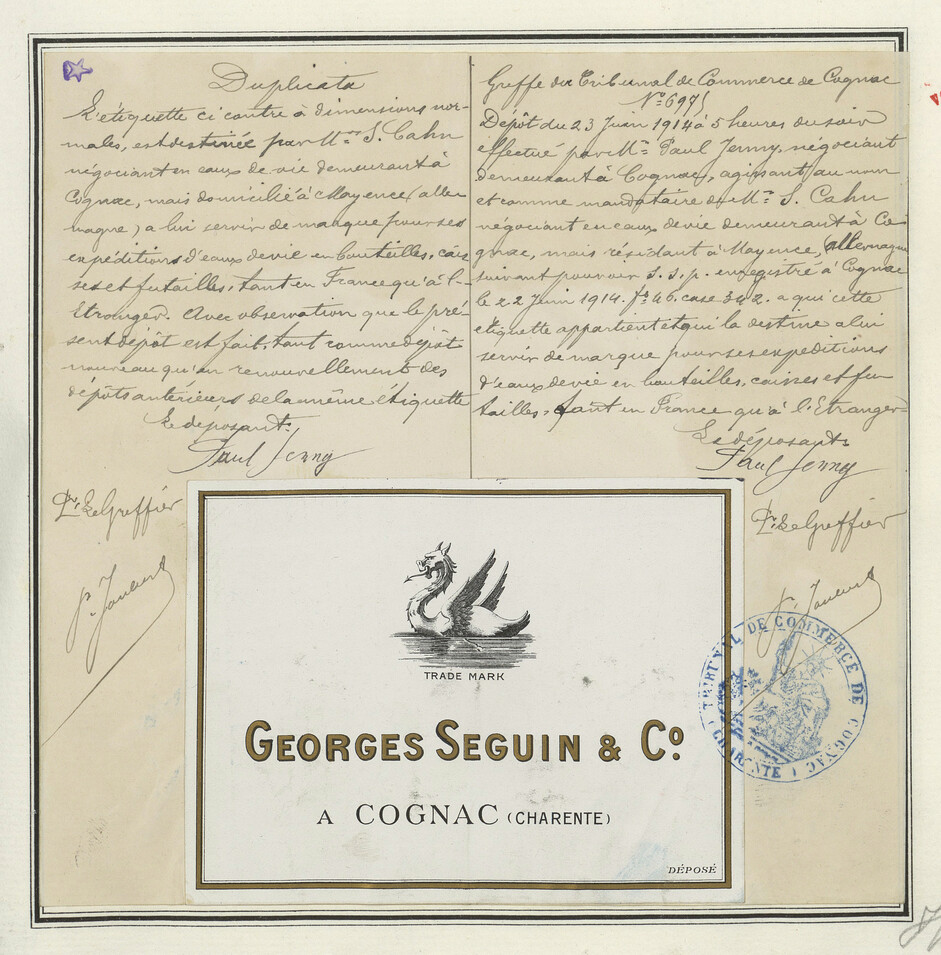 Duplicata
L'étiquette ci contre à dimensions nor-
males, est destinée par Mr. S. Cahn
négociant en eaux de vie demeurant à
Cognac, mais domicilié à Mayence (alle-
magne) a lui servir de marque pour ses
expéditions d'eaux de vie en bouteilles, cais
ses et futailles, tant en France qu'à l'-
Etranger. Avec observation que le pré-
sent dépôt est fait, tant comme dépôt
nouveau qu'en renouvellement des
dépôts antérieurs de la même étiquette
Le déposant:
Paul Jenny
Pr. Le Greffier
Greffe du Tribunal de Commerce de Cognac
No: 6975
Dépôt du 23 Juin 1914 à 5 heures du soir
effectué par Mr. Paul Jenny, négociant
demeurant à Cognac, agissant au nom
et comme mandataire de Mr. S. Cahn
négociant en eaux de vie demeurant à Co-
gnac, mais résidant à Mayence, (allemagne
suivant pouvoir s.s.p. enregistré à Cognac
le 22 Juin 1914. fo 46. case 342. a qui cette
étiquette appartient et qui la destine a lui
servir de marque pour ses expéditions
d'eaux de vie en bouteilles, caisses et fu
tailles, tant en France qu'à l'Etranger
Le déposant:
Paul Jenny
Pr. Le Greffier
TRADE MARK
GEORGES SEGUIN & Co.
A COGNAC (CHARENTE)
DÉPOSÉ
TRIBUNAL DE COMMERCE DE COGNAC
(CHARENTE)